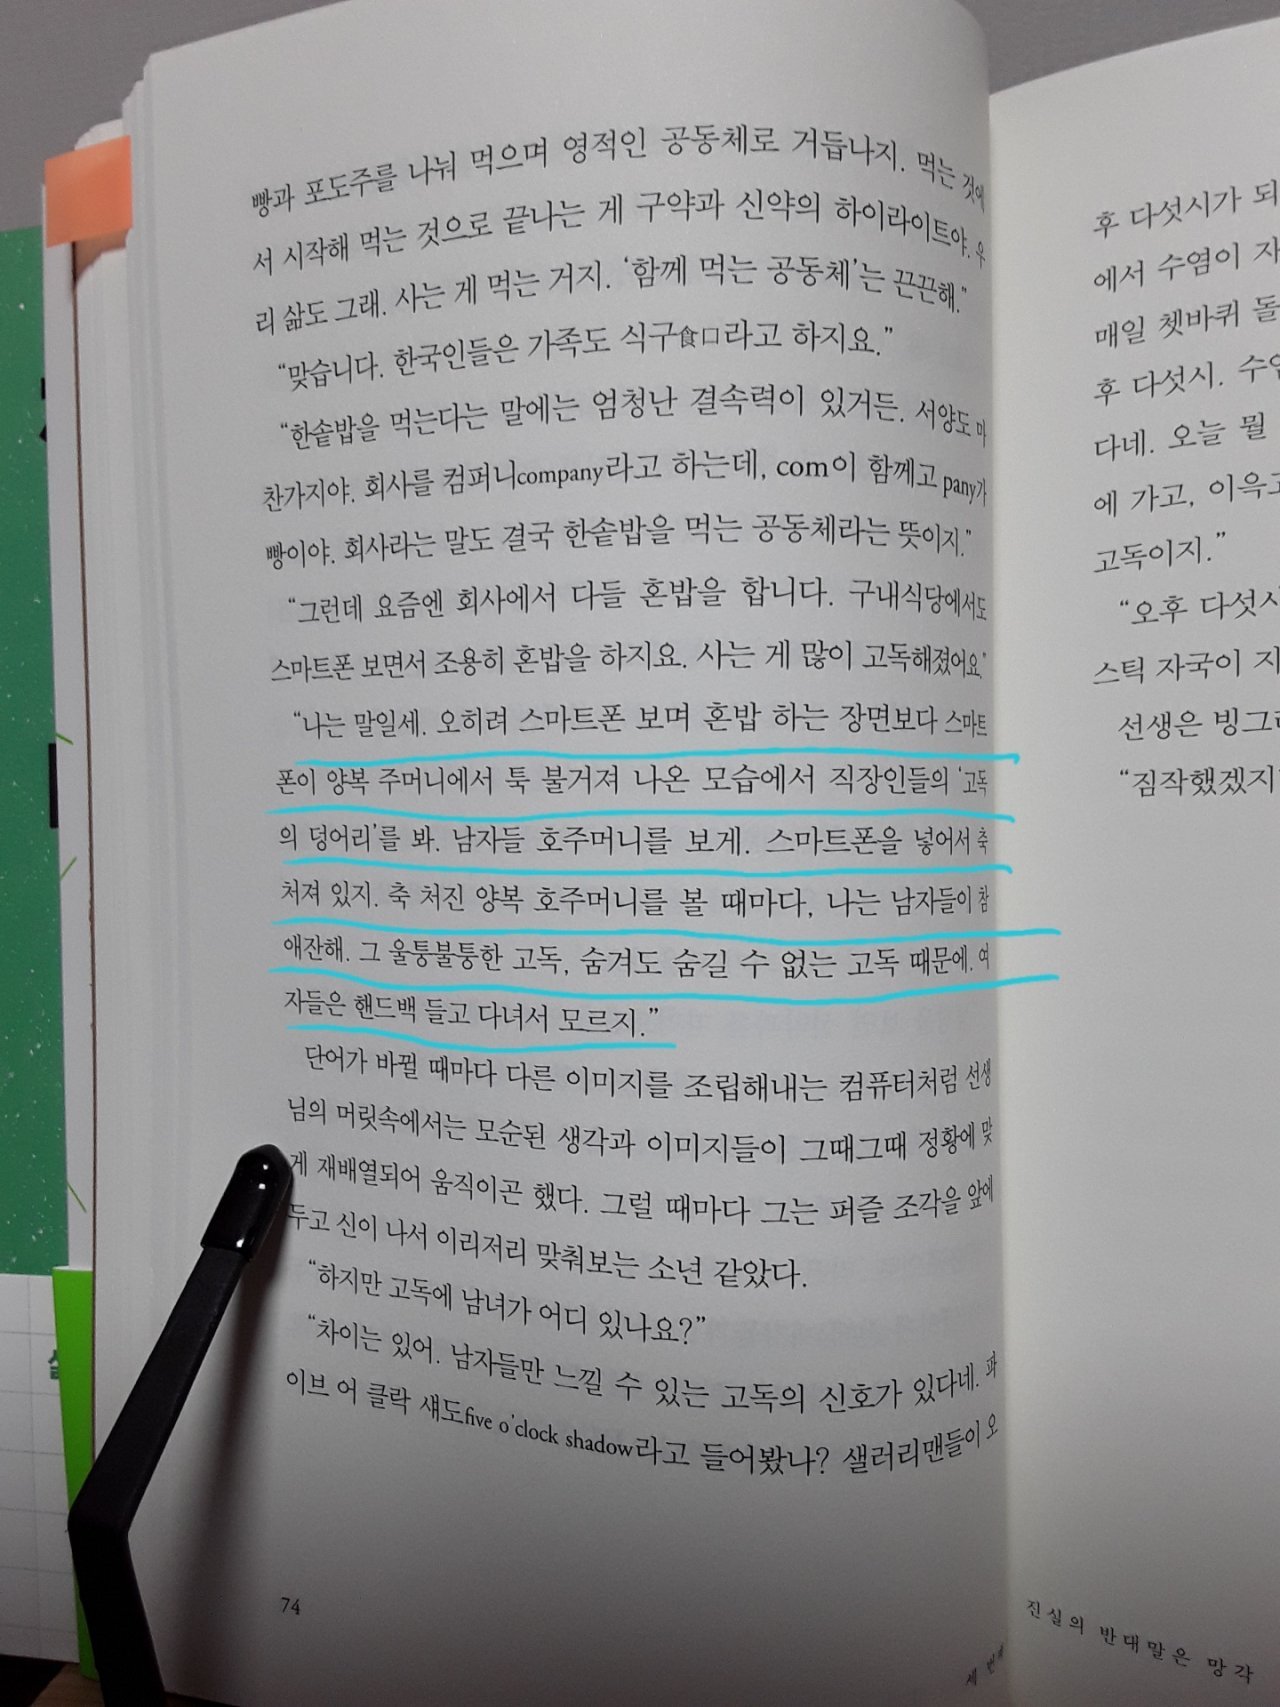 빵과 포도주를 나눠 먹으며 영적인 공동체로 거듭나지. 먹는 것에
서 시작해 먹는 것으로 끝나는 게 구약과 신약의 하이라이트야. 우
리 삶도 그래. 사는 게 먹는 거지. ‘함께 먹는 공동체’는 끈끈해.”
“맞습니다. 한국인들은 가족도 식구食口라고 하지요.”
“한솥밥을 먹는다는 말에는 엄청난 결속력이 있거든. 서양도 마
찬가지야. 회사를 컴퍼니company라고 하는데, com이 함께고 pany가
빵이야. 회사라는 말도 결국 한솥밥을 먹는 공동체라는 뜻이지.”
“그런데 요즘엔 회사에서 다들 혼밥을 합니다. 구내식당에서도
스마트폰 보면서 조용히 혼밥을 하지요. 사는 게 많이 고독해졌어요.”
“나는 말일세. 오히려 스마트폰 보며 혼밥 하는 장면보다 스마트
폰이 양복 주머니에서 툭 불거져 나온 모습에서 직장인들의 ‘고독
의 덩어리’를 봐. 남자들 호주머니를 보게. 스마트폰을 넣어서 축
처져 있지. 축 처진 양복 호주머니를 볼 때마다, 나는 남자들이 참
애잔해. 그 울퉁불퉁한 고독, 숨겨도 숨길 수 없는 고독 때문에. 여
자들은 핸드백 들고 다녀서 모르지.”
단어가 바뀔 때마다 다른 이미지를 조립해내는 컴퓨터처럼 선생
님의 머릿속에서는 모순된 생각과 이미지들이 그때그때 정황에 맞
게 재배열되어 움직이곤 했다. 그럴 때마다 그는 퍼즐 조각을 앞에
두고 신이 나서 이리저리 맞춰보는 소년 같았다.
“하지만 고독에 남녀가 어디 있나요?”
“차이는 있어. 남자들만 느낄 수 있는 고독의 신호가 있다네. 파
이브 어 클락 섀도five o'clock shadow라고 들어봤나? 샐러리맨들이 오
74
후 다섯시가 되
에서 수염이 자
매일 쳇바퀴 돌
후 다섯시. 수염
다네. 오늘 뭘
에 가고, 이윽고
고독이지.”
“오후 다섯시
스틱 자국이 지
선생은 빙그레
“짐작했겠지
세 번째
진실의 반대말은 망각